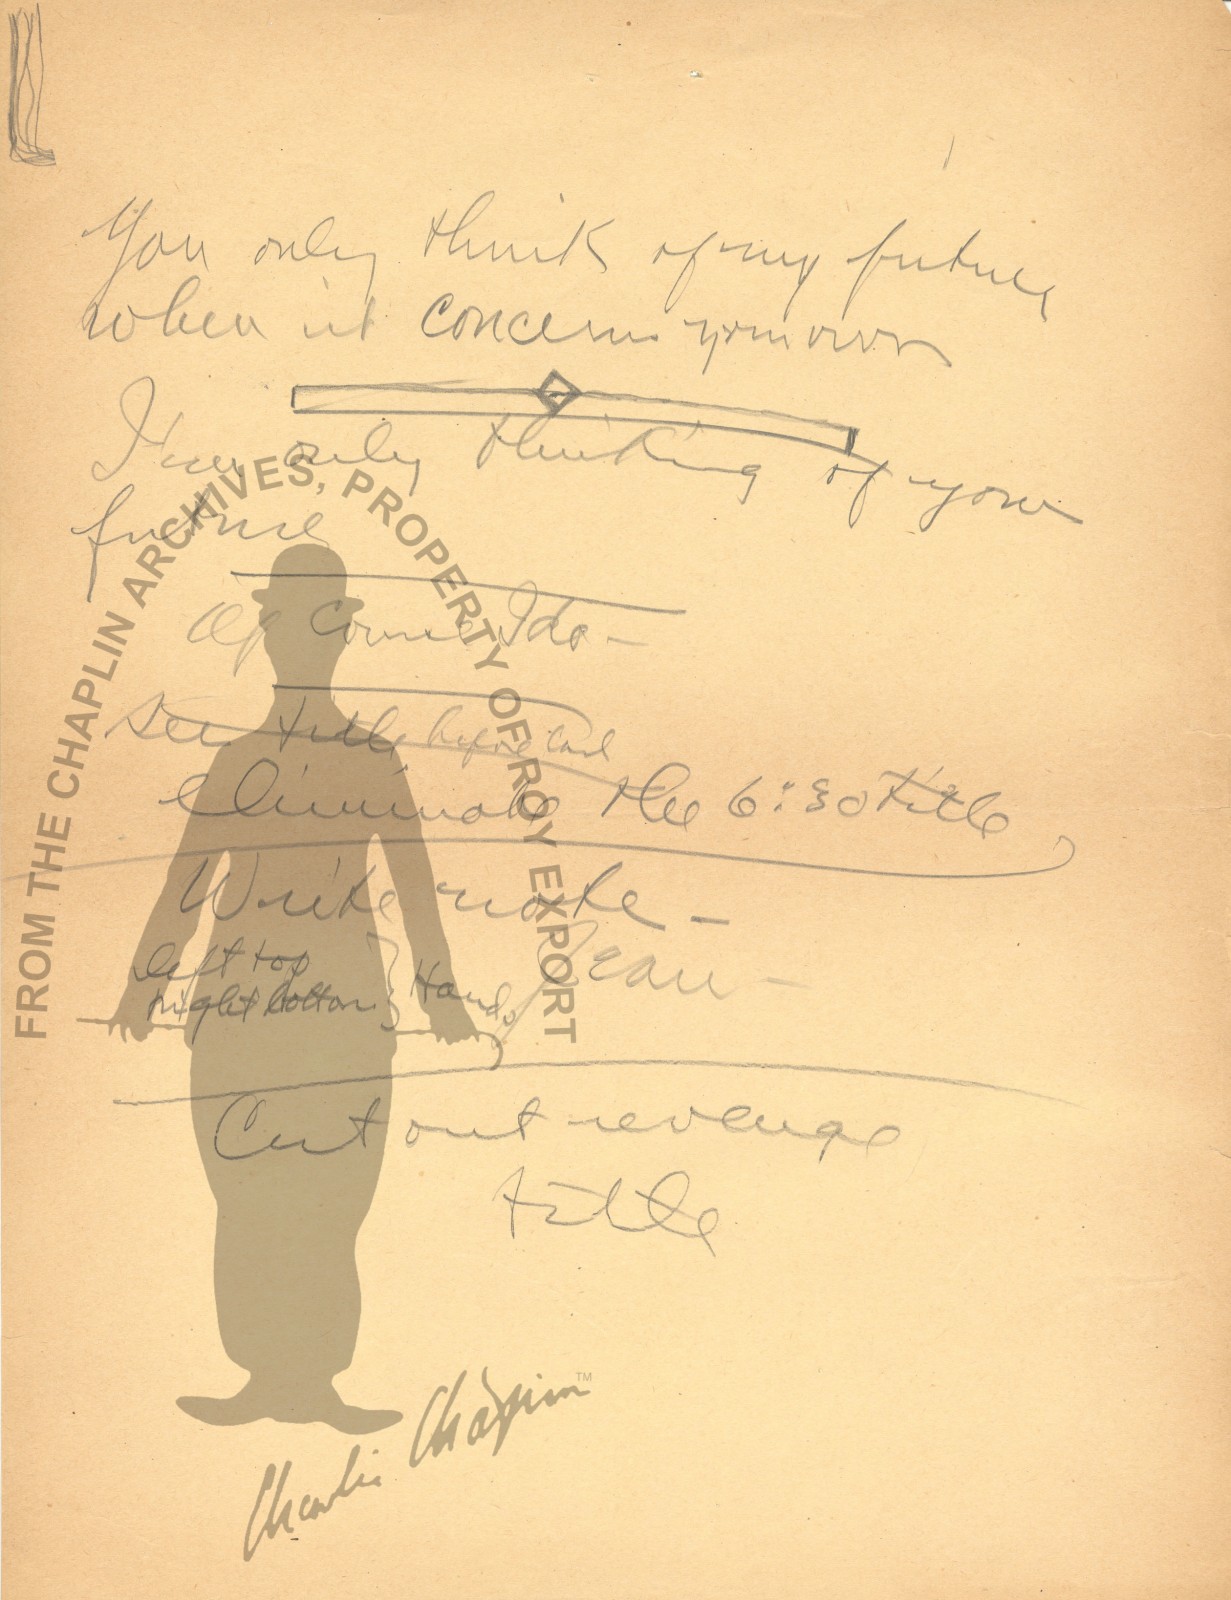 You only think of my future
when it concerns your own
I'm only thinking of your
future
Of course I do –
See title before last
eliminate the 6:30 title
Write note –
Jean –
left top
right bottom } Hand
Cut out revenge
title
FROM THE CHAPLIN ARCHIVES, PROPERTY OF ROY EXPORT
Charlie Chaplin™